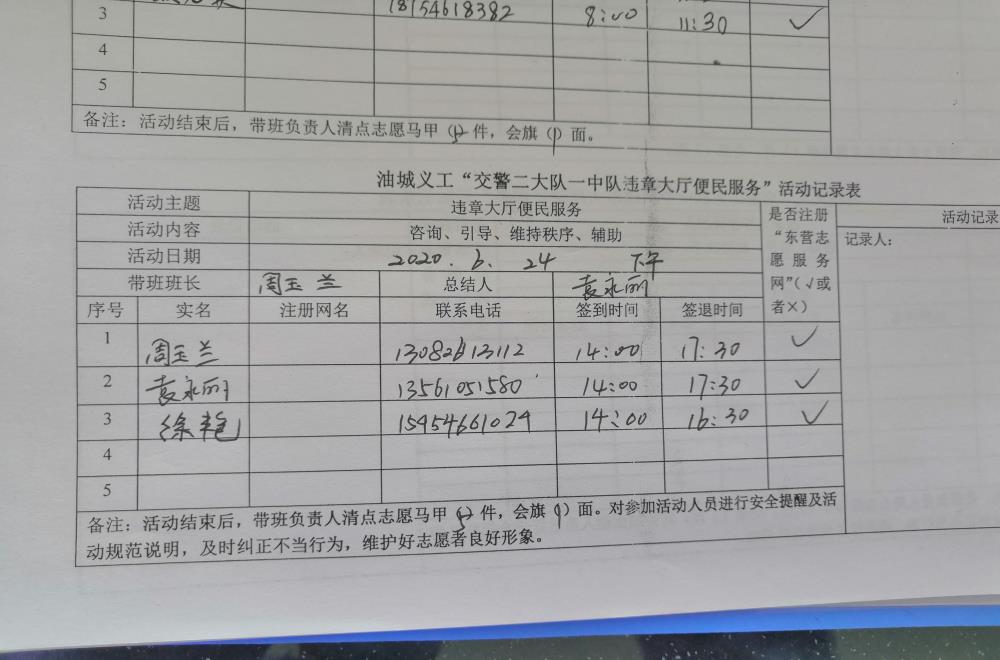 3 18154618382 8:00 11:30 ✓
4
5
备注：活动结束后，带班负责人清点志愿马甲（5）件，会旗（1）面。
油城义工“交警二大队一中队违章大厅便民服务”活动记录表
活动主题 违章大厅便民服务 是否注册“东营志愿服务网”（√或者×） 活动记录
活动内容 咨询、引导、维持秩序、辅助 记录人：
活动日期 2020.6.24 下午
带班班长 周玉兰 总结人 袁永丽
序号 实名 注册网名 联系电话 签到时间 签退时间
1 周玉兰 13082613112 14:00 17:30 ✓
2 袁永丽 13561051580 14:00 17:30 ✓
3 徐艳 15954661029 14:00 16:30 ✓
4
5
备注：活动结束后，带班负责人清点志愿马甲（5）件，会旗（1）面。对参加活动人员进行安全提醒及活
动规范说明，及时纠正不当行为，维护好志愿者良好形象。